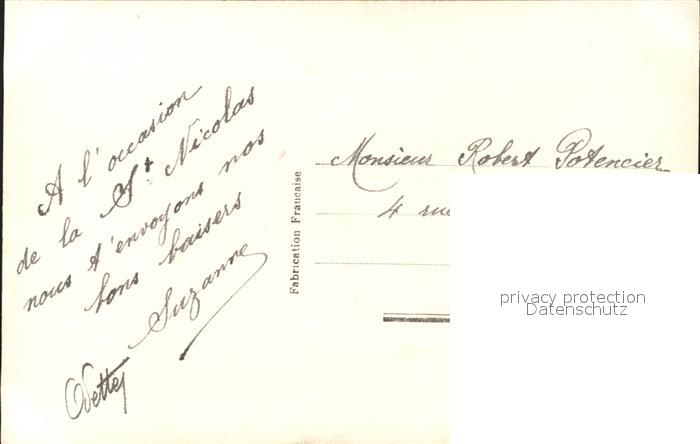 A l'occasion
de la St Nicolas
nous t'envoyons nos
bons baisers
Suzanne
Odette
Fabrication Francaise
Monsieur Robert Potencier
4 rue
privacy protection
Datenschutz